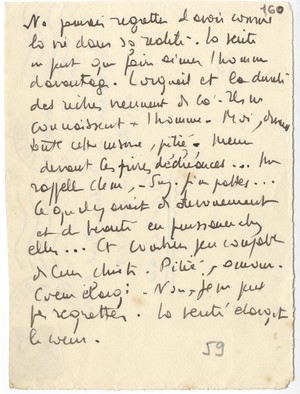 160
Ne pouvoir regretter d'avoir connu
la vie dans sa réalité. La vérité
ne peut que faire aimer l'homme
davantage. L'orgueil et la dureté
des riches viennent de là. Ils ne
connaissent l'homme. Moi, devant
toute cette misère, pitié. Même
devant les pires déchéances...
rappelle
Ce qu'il y avait de dévouement
et de beauté en puissance chez
elles... Et combien peu coupables
de leur chute. Pitié, amour.
Cœur élargi. Non, je ne peux
pas regretter. La vérité élargit
le cœur.
59